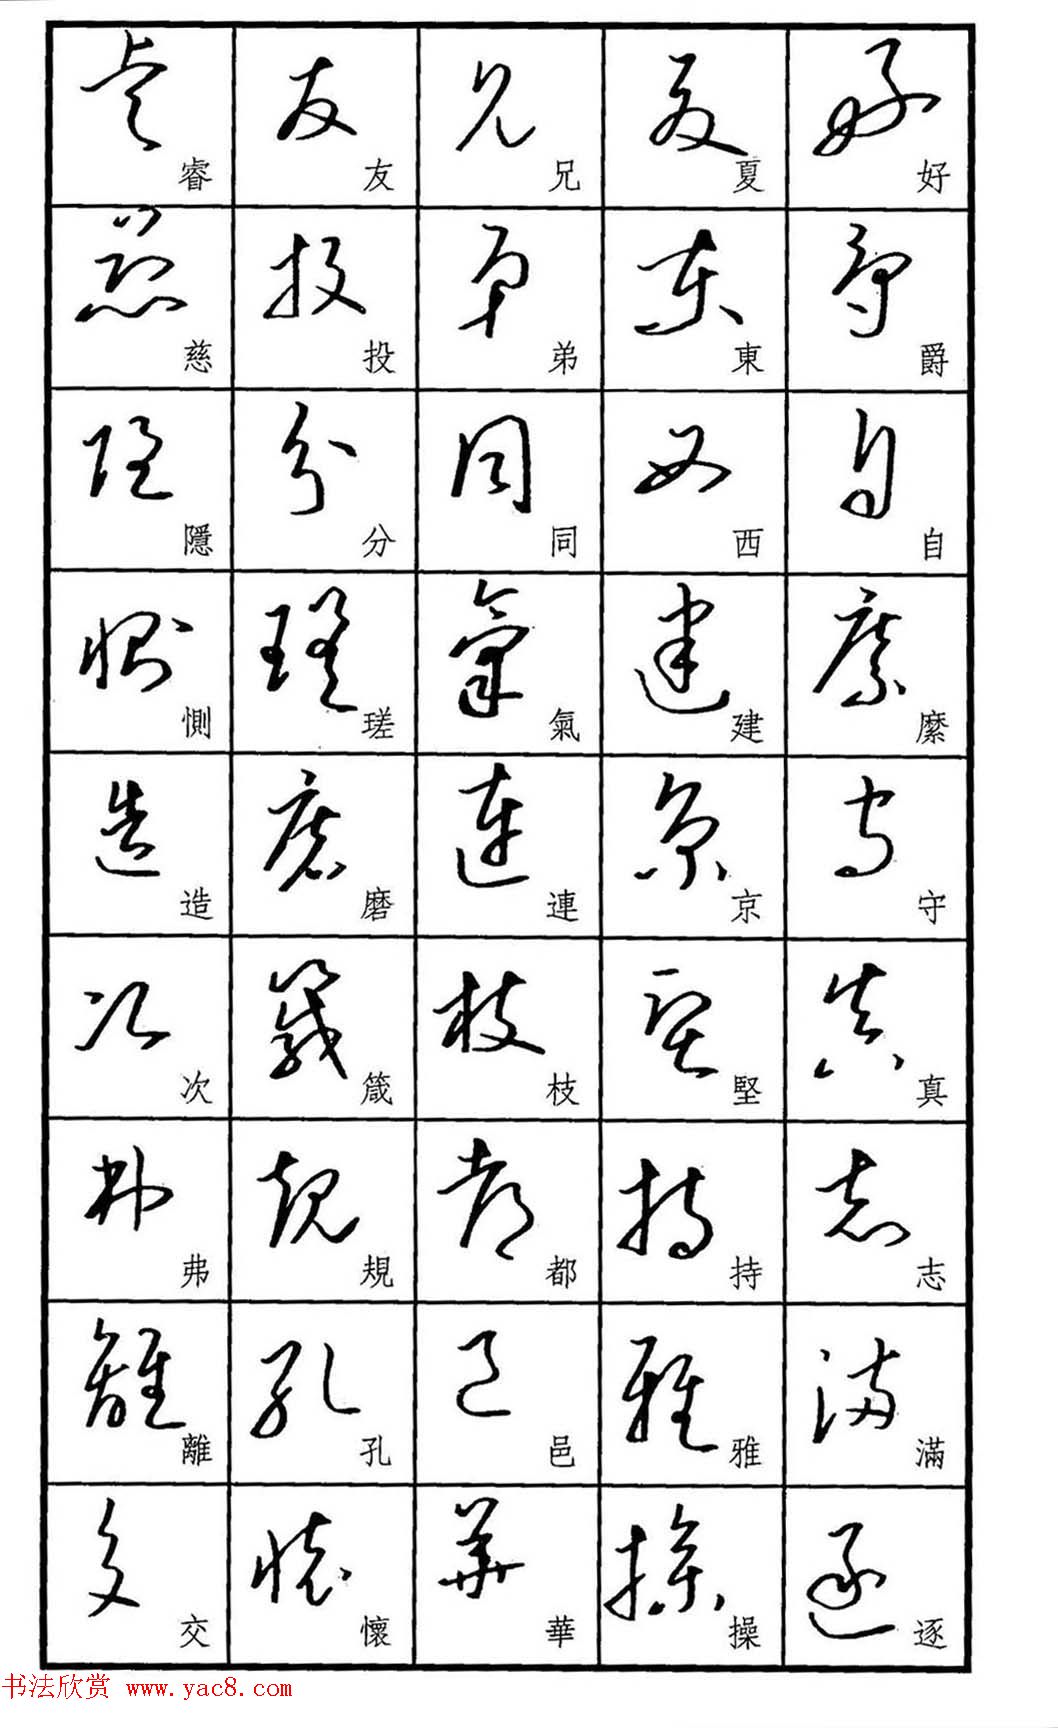 睿慈隱惻造次弗離交
友投分瑳磨箴規孔懷
兄弟同氣連枝都邑華
夏東西建京堅持雅操
好爵自縻守真志滿逐
书法欣赏 www.yac8.com